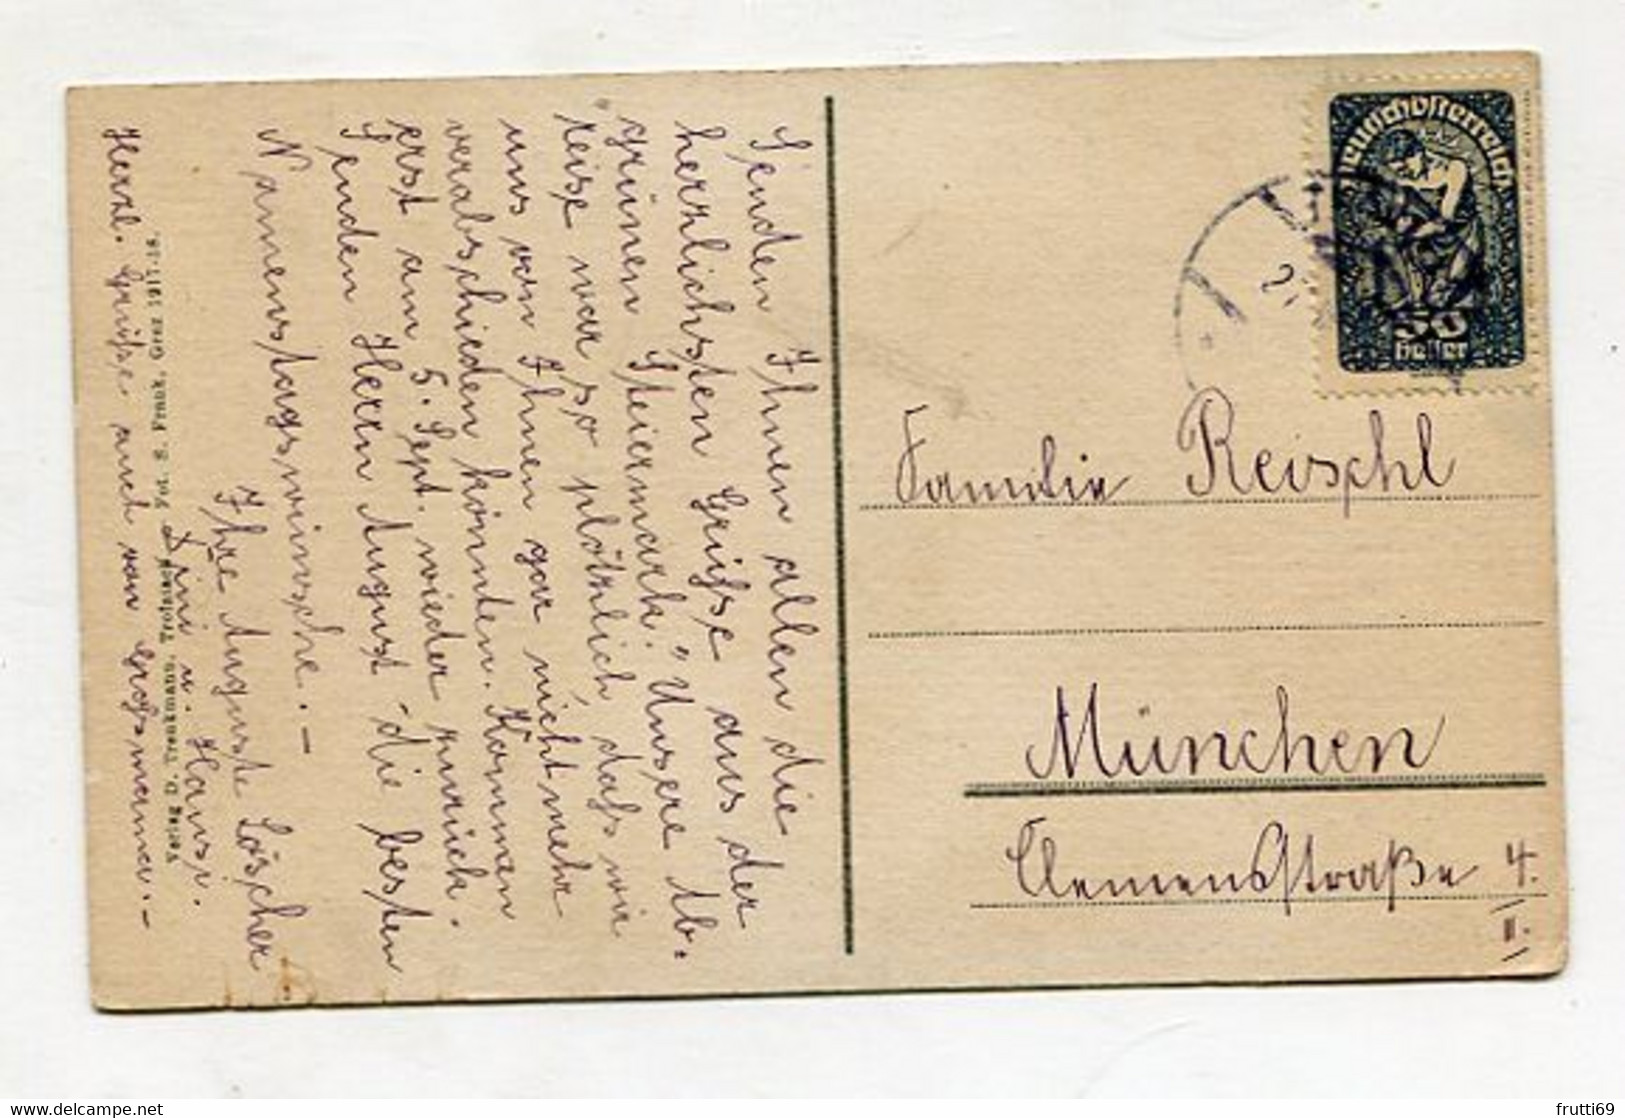 Senden Ihnen allen die
herzlichsten Grüße aus der
grünen Steiermark. „Unsere Ab-
reise" war so plötzlich, daß wir
uns von Ihnen gar nicht mehr
verabschieden könnten. Kommen
erst am 5. Sept. wieder zurück.
Senden Herrn August - die besten
Namenstagswünsche. -
Ihre Auguste Löscher
Fini u. Hansi.
Herzl. Grüße auch von Großmama. -
Verlag D. Trenkmann, Trofaiach
Fot. S. Frank, Graz 1917-18.
Deutschösterreich
50
Heller
2
Familie Reischl
München
Clemensstraße 4.
II.
frutti69